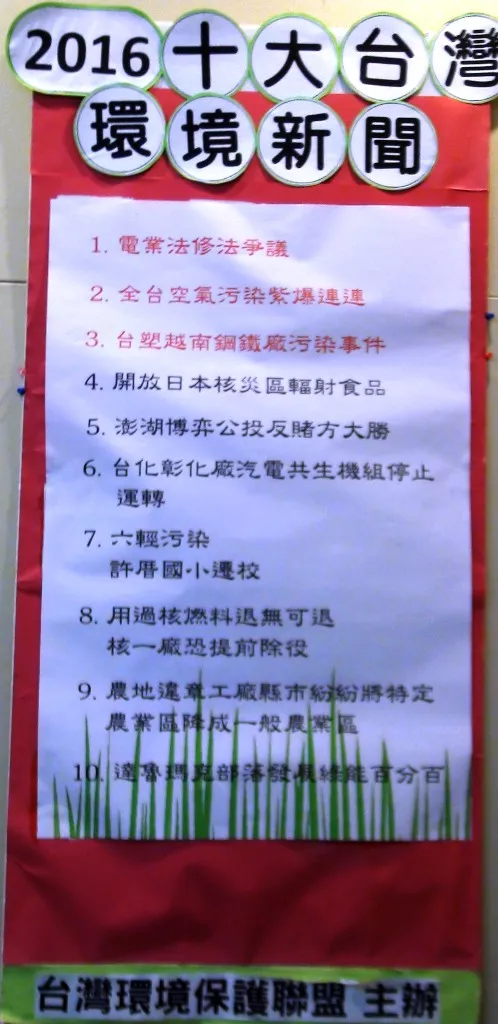 2016十大台灣
環境新聞
1. 電業法修法爭議
2. 全台空氣污染紫爆連連
3. 台塑越南鋼鐵廠污染事件
4. 開放日本核災區輻射食品
5. 澎湖博弈公投反賭方大勝
6. 台化彰化廠汽電共生機組停止
運轉
7. 六輕污染
許厝國小遷校
8. 用過核燃料退無可退
核一廠恐提前除役
9. 農地違章工廠縣市紛紛將特定
農業區降成一般農業區
10. 達魯瑪克部落發展綠能百分百
台灣環境保護聯盟 主辦